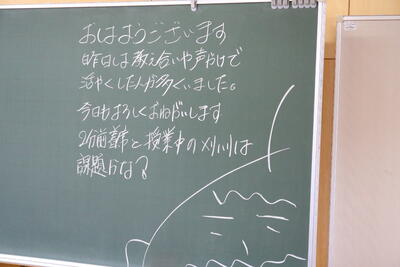 おはようございます
昨日は教え合いや声かけで
活やくした人が多くいました。
今日もよろしくおねがいします
2分前着席と授業中のメリハリは
課題かな?